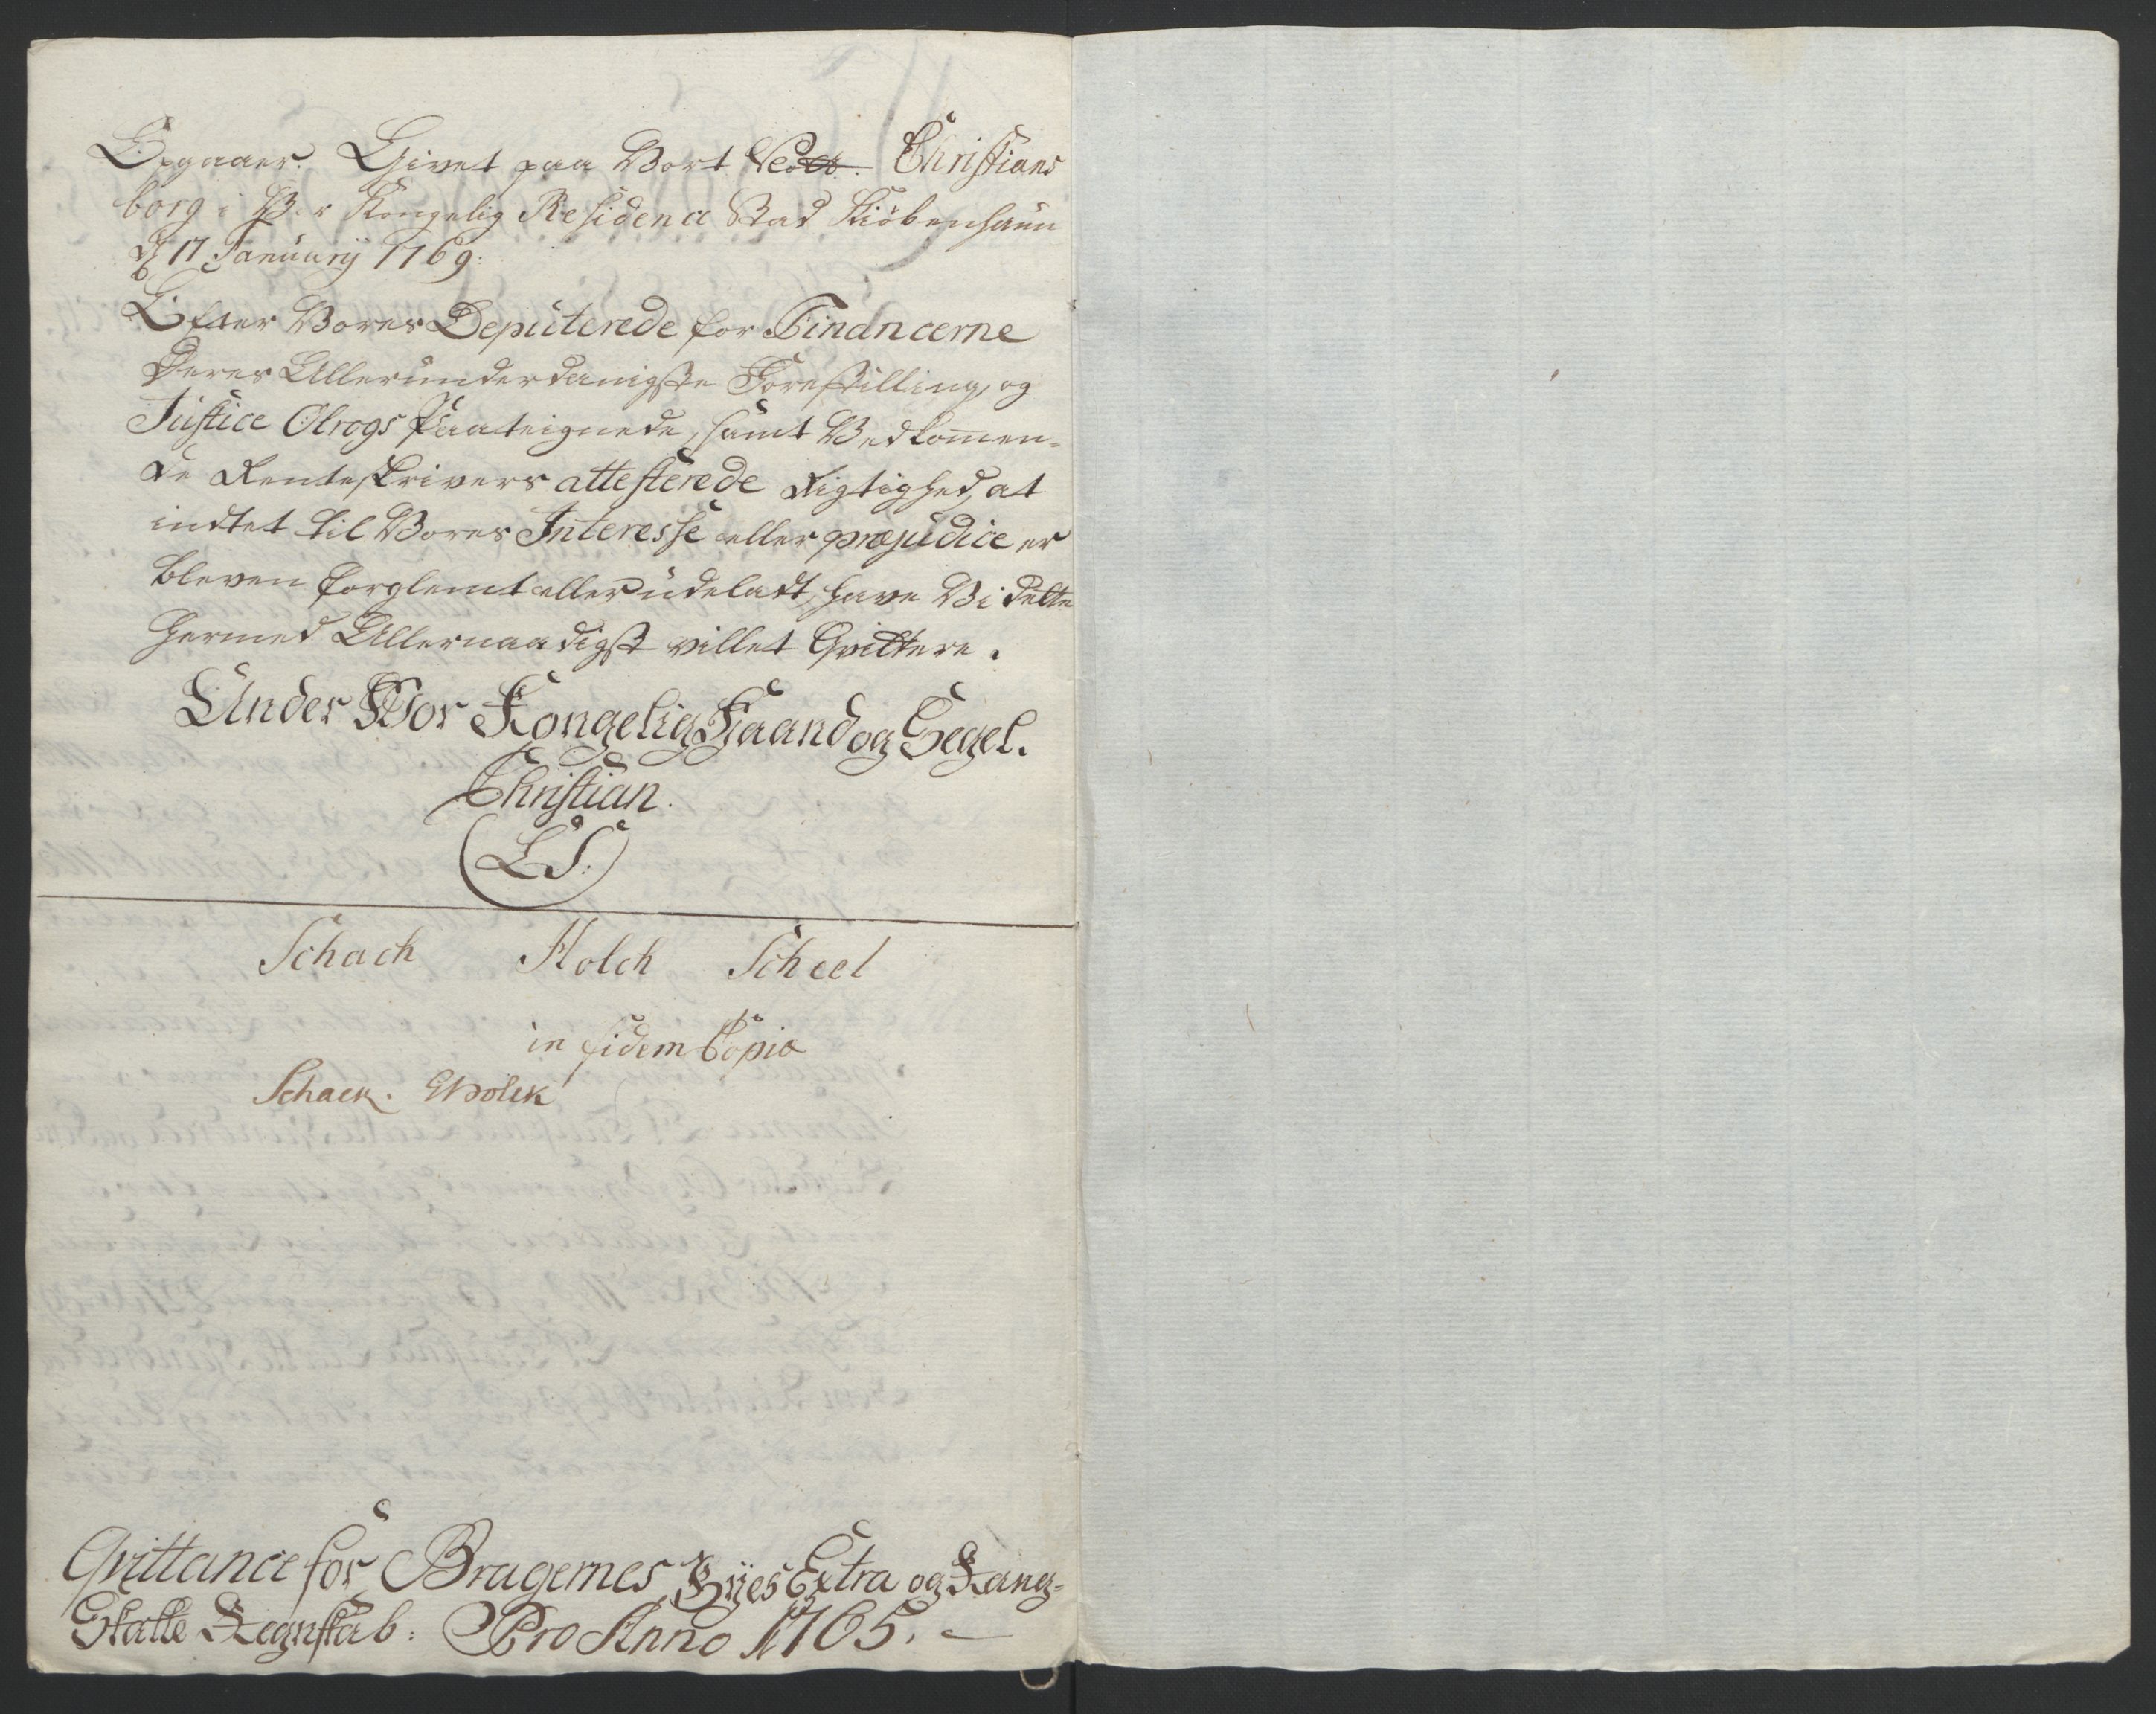 Opgaaer. Givet paa Vort Christians
borg i Vor Kongelig Residence Stad Kiöbenhaun
d 17 Januarij 1769.
Efter Vores Deputerede for Financerne
Deres Allerunderdanigste Forestilling, og
Justice Olrogs Paateignede, samt Vedkommen-
de Renteskrivers attesterede Rigtighed, at
indtet til Vores Interesse eller præjudice er
bleven forglemt eller udeladt, have Vi dette
hermed Allernaadigst villet Qvittere.
Under Vor Kongelig Haand og Segel.
Christian.
(L S:)
Schach Holch Scheel
in fidem Copiæ
Schack. Holck
Qvittance for Bragernes Byes Extra og Rang-
Skatte Regnskab: Pro Anno 1765.